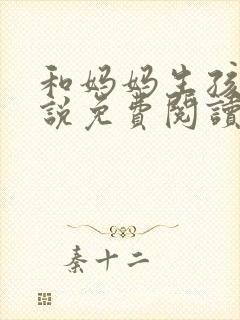 和妈妈生孩
説免費閱讀
秦十二